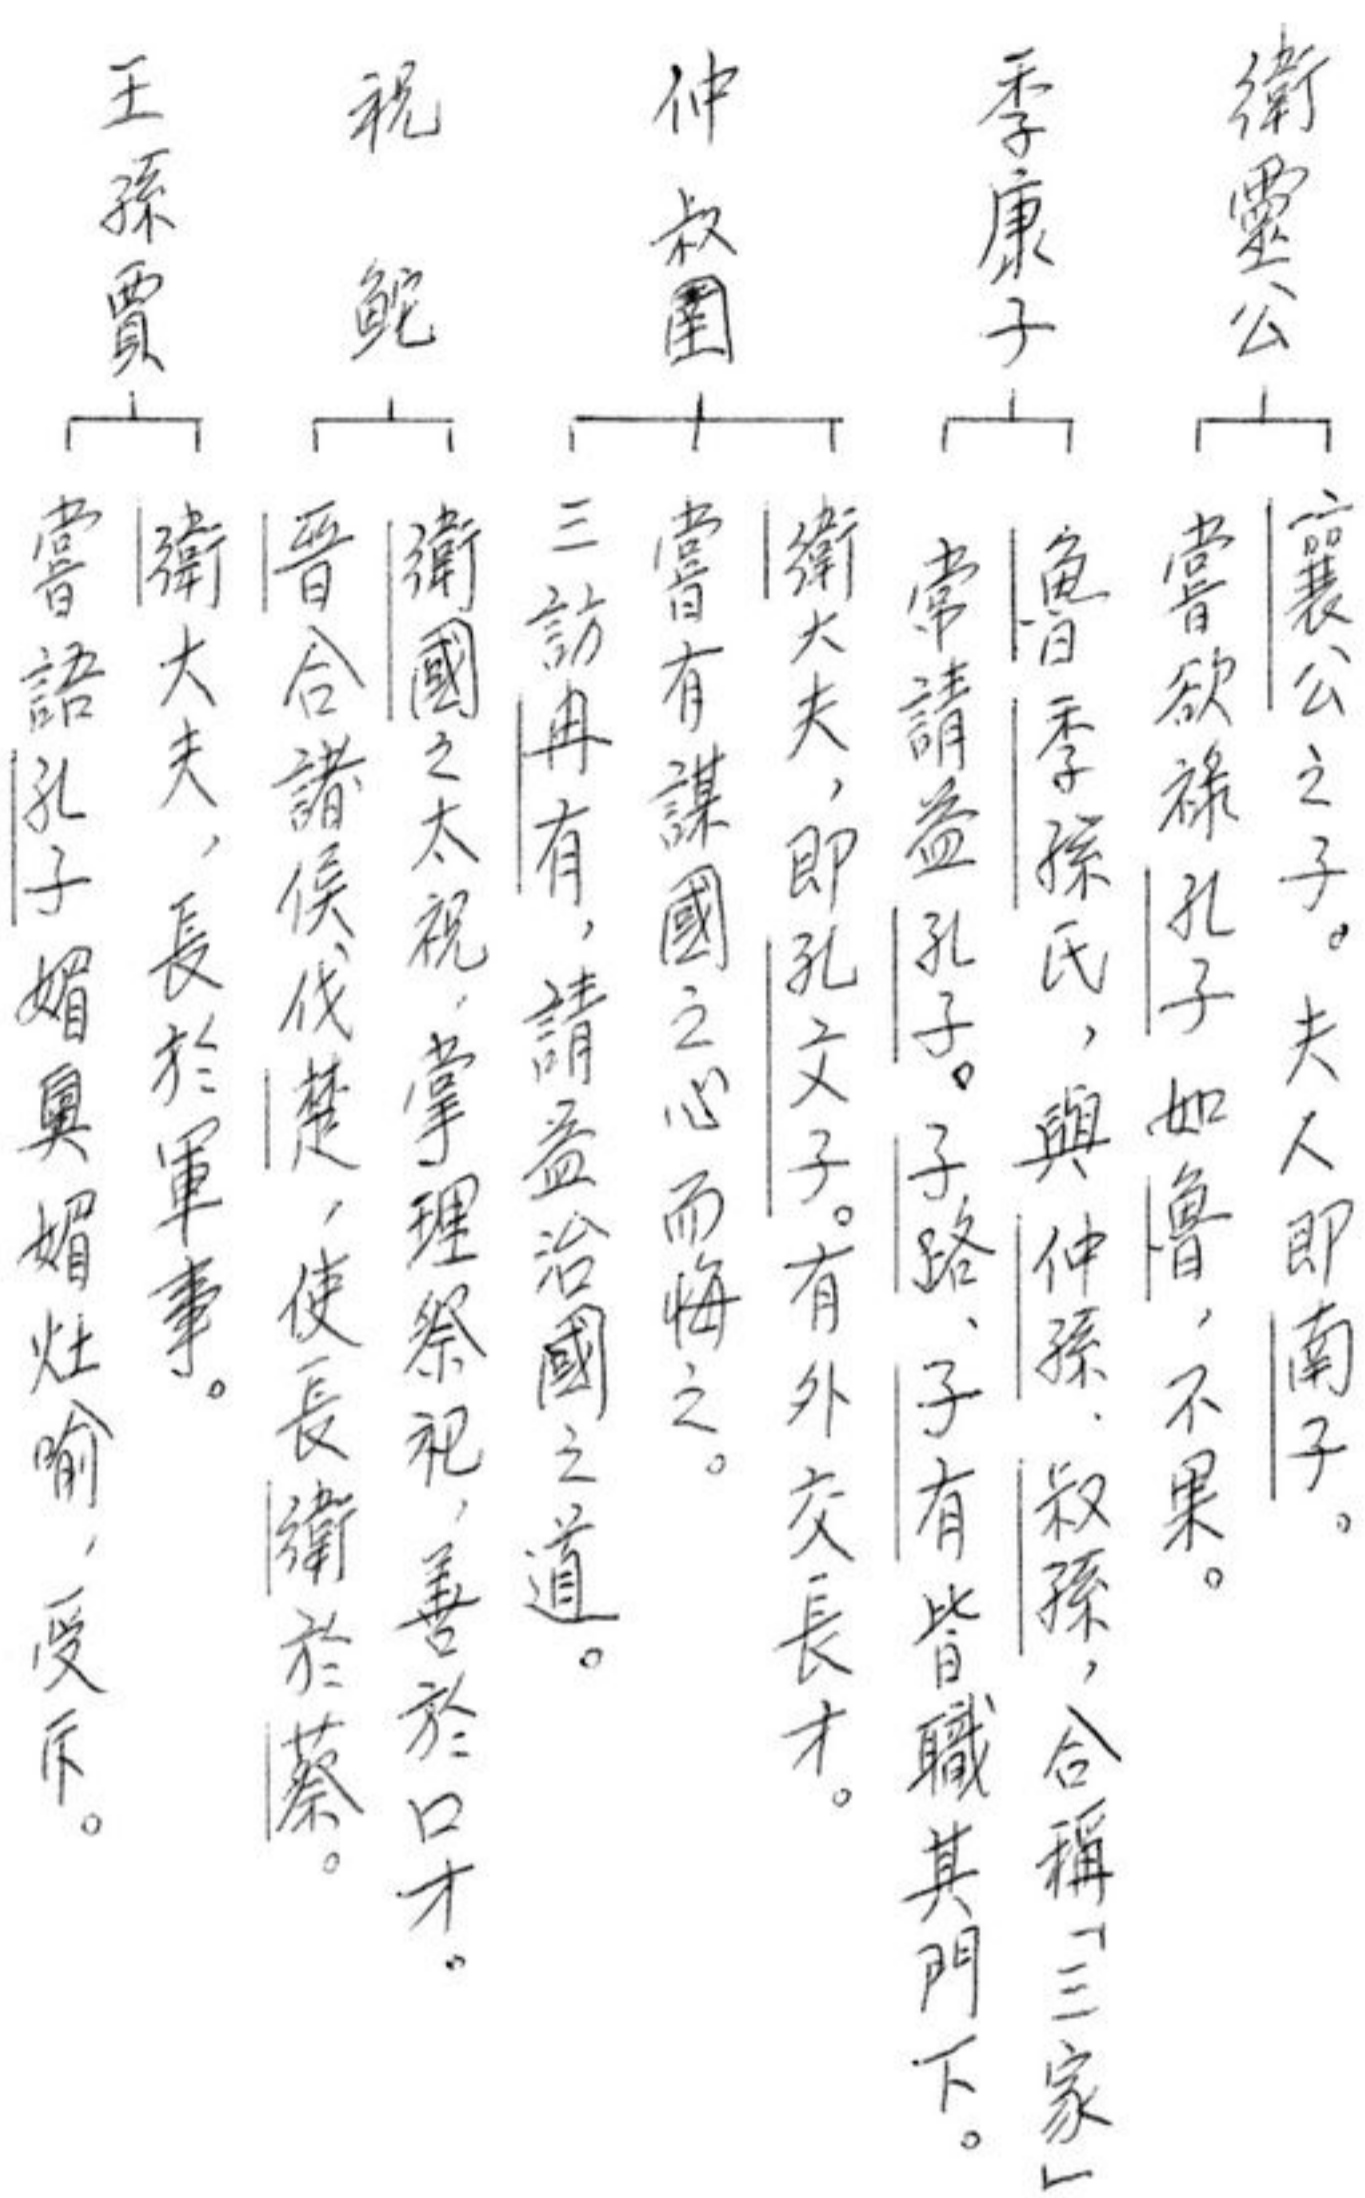 衛靈公
襄公之子。夫人即南子。
嘗欲祿孔子如魯，不果。
季康子
魯季孫氏，與仲孫、叔孫，合稱「三家」
常請益孔子。子路、子有皆職其門下。
仲叔圉
衛大夫，即孔文子。有外交長才。
嘗有謀國之心而悔之。
三訪冉有，請益治國之道。
祝鮀
衛國之太祝，掌理祭祀，善於口才。
晉合諸侯伐楚，使長衛於蔡。
王孫賈
衛大夫，長於軍事。
嘗語孔子媚奧媚灶喻，受斥。